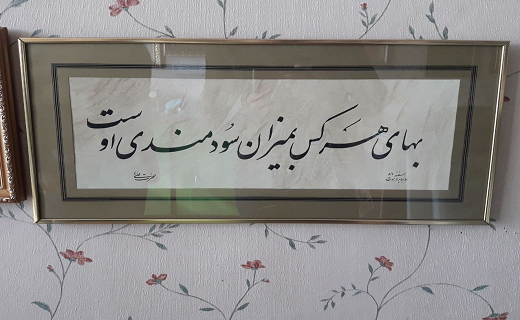 بهای هر کس بمیزان سُودمندی اوست